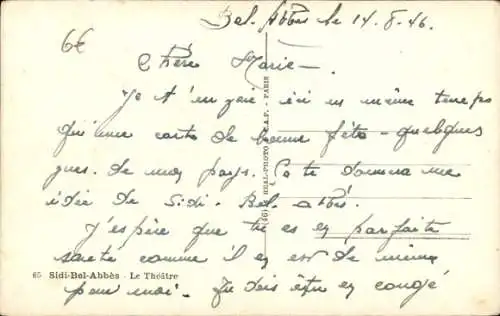 Bel. Abbès le 14-8-46.
6€
Chère Marie -
Je t'envoie ici en même temps
qu'une carte de bonne fête - quelques
vues. de mon pays. Ça te donnera une
idée de Sidi. Bel. Abbés.
J'espère que tu es en parfaite
santé comme il en est de même
pour moi. Tu dois être en congé
65 Sidi-Bel-Abbès - Le Théâtre
REAL-PHOTO C.A.P. - PARIS